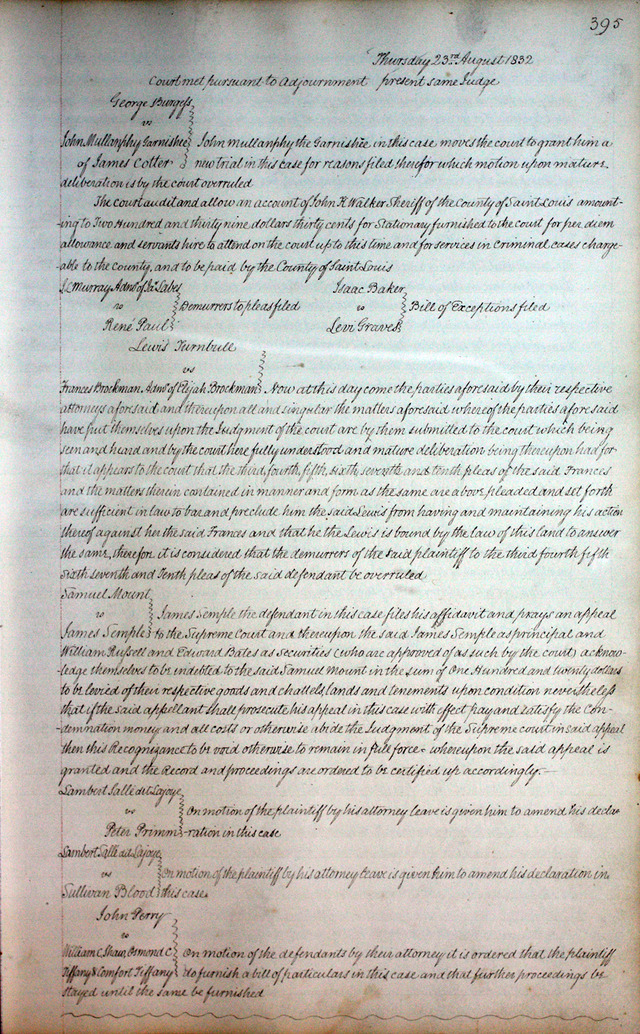 395
Thursday 23rd August 1832
Court met pursuant to Adjournment present same Judge
George Burgess
vs
John Mullanphy Garnishee John Mullanphy the Garnishee in this case moves the court to grant him a
of James Cotter new trial in this case for reasons filed therefor which motion upon mature
deliberation is by the court overruled
The court audit and allow an account of John K Walker Sheriff of the County of Saint Louis amount-
-ing to Two Hundred and thirty nine dollars thirty cents for Stationary furnished to the court for per diem
allowance and servants hire to attend on the court up to this time and for services in criminal cases charge-
able to the county, and to be paid by the County of Saint Louis
Murray Admr of Labes Isaac Baker
vs Demurrers to pleas filed vs Bill of Exceptions filed
René Paul Levi Graves
Lewis Turnbull
vs
Frances Brockman Admr of Elijah Brockman Now at this day come the parties aforesaid by their respective
attorneys aforesaid and thereupon all and singular the matters aforesaid whereof the parties afore said
have put themselves upon the Judgment of the court are by them submitted to the court which being
seen and heard and by the court here fully understood and mature deliberation being thereupon had for
that it appears to the court that the third, fourth, fifth, sixth, seventh and tenth pleas of the said Frances
and the matters therein contained in manner and form as the same are above pleaded and set forth
are sufficient in law to bar and preclude him the said Lewis from having and maintaining his action
thereof against her the said Frances and that he the Lewis is bound by the law of this land to answer
the same, therefore it is considered that the demurrers of the said plaintiff to the third fourth fifth
Sixth seventh and Tenth pleas of the said defendant be overruled
Samuel Mount
vs James Semple the defendant in this case files his affidavit and prays an appeal
James Semple to the Supreme Court and thereupon the said James Semple as principal and
William Russell and Edward Bates as securities (who are approved of as such by the court) acknow-
ledge themselves to be indebted to the said Samuel Mount in the sum of One Hundred and twenty dollars
to be levied of their respective goods and chattels lands and tenements upon condition nevertheless
that if the said appellant shall prosecute his appeal in this case with effect pay and satisfy the con-
-demnation money and all costs or otherwise abide the Judgment of the Supreme court in said appeal
then this Recognizance to be void otherwise to remain in full force - whereupon the said appeal is
granted and the Record and proceedings are ordered to be certified up accordingly.—
Lambert Salle dit Lajoye
vs On motion of the plaintiff by his attorney leave is given him to amend his decla-
Peter Primm -ration in this case
Lambert Salle dit Lajoye
vs On motion of the plaintiff by his attorney leave is given him to amend his declaration in
Sullivan Blood this case
John Perry
vs
William C Shaw, Osmond C On motion of the defendants by their attorney it is ordered that the plaintiff
Tiffany & Comfort Tiffany do furnish a bill of particulars in this case and that further proceedings be
stayed until the same be furnished